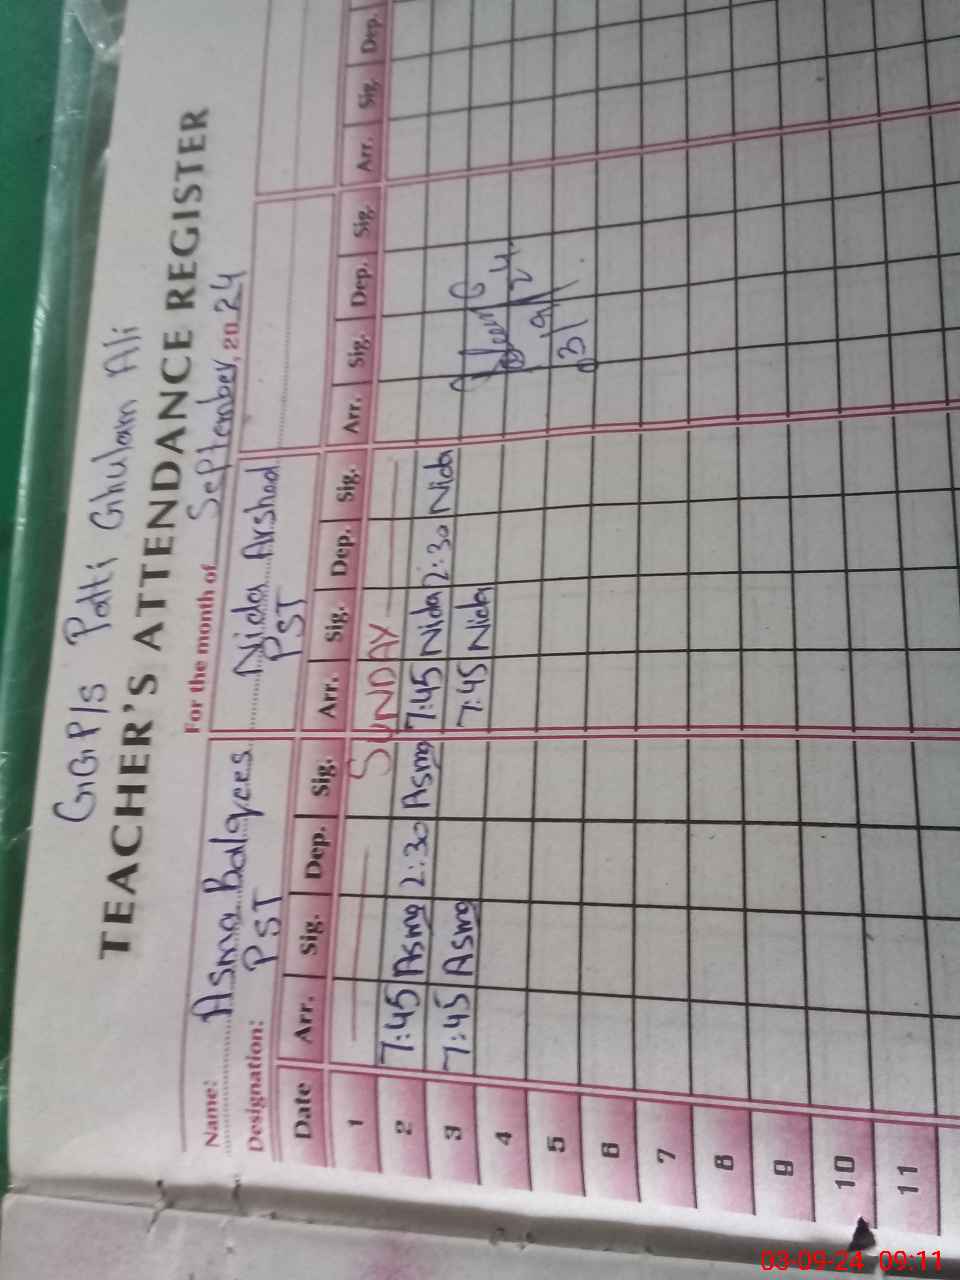 GGP/S Patti Ghulam Ali
TEACHER'S ATTENDANCE REGISTER
For the month of September, 2024
Name: Asma Balqees Nida Arshad
Designation: PST PST
Date Arr. Sig. Dep. Sig. Arr. Sig. Dep. Sig. Arr. Sig. Dep. Sig. Arr. Sig. Dep.
1 SUNDAY
2 7:45 Asma 2:30 Asma 7:45 Nida 2:30 Nida
3 7:45 Asma 7:45 Nida
4
5
6
7
8
9
10
11
03-09-24 09:11